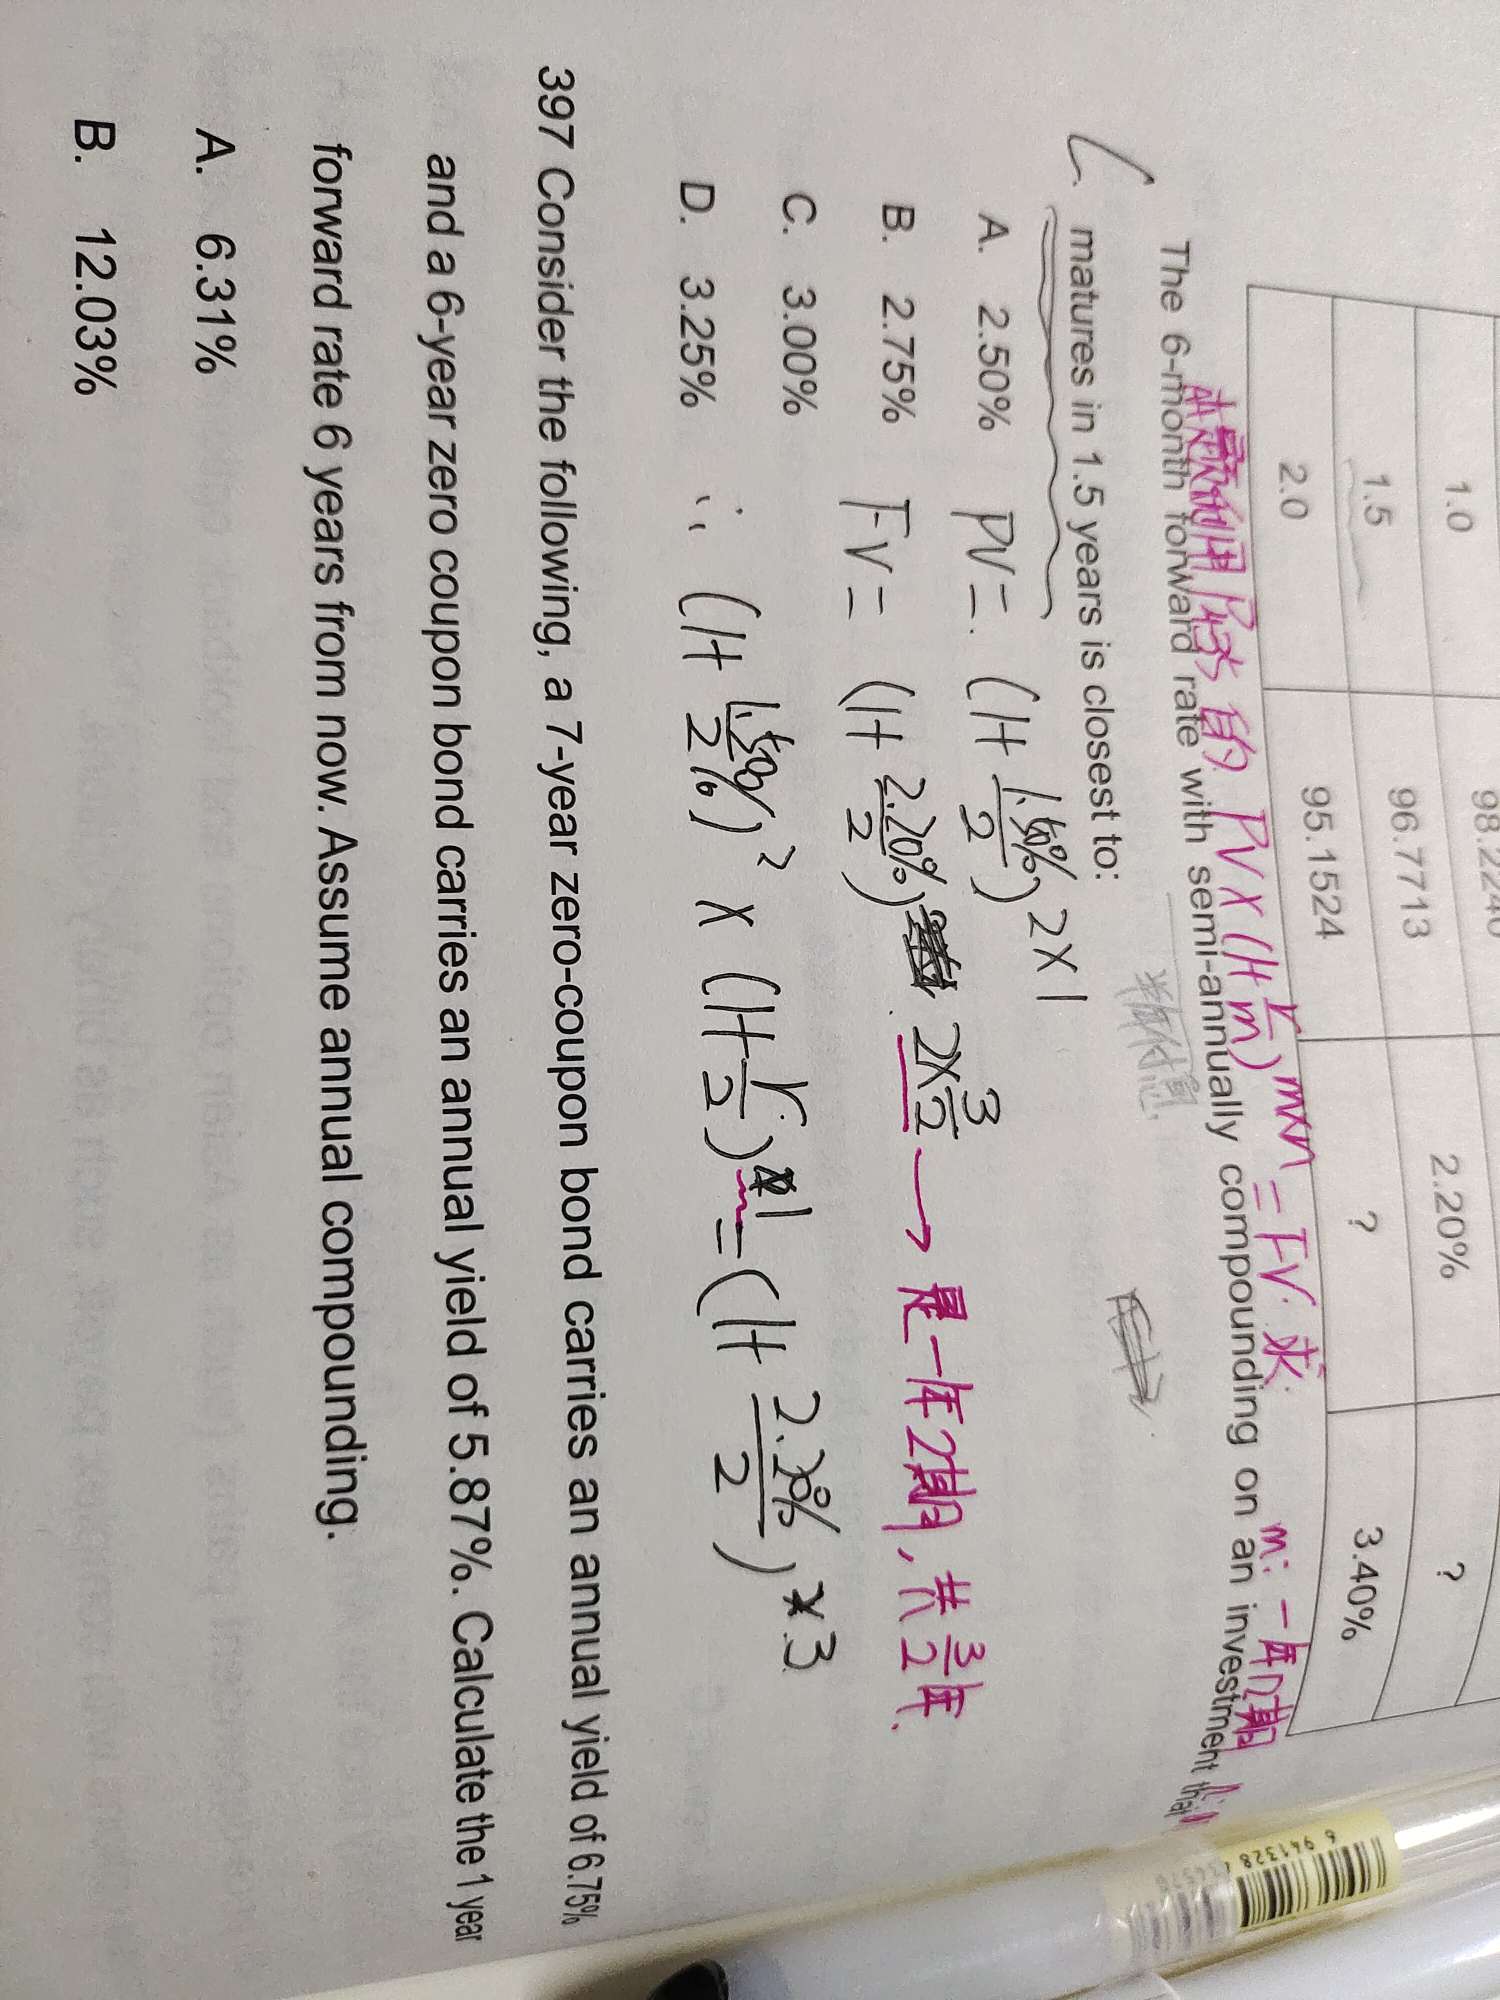 1.0 98.2240 2.20% ?
1.5 96.7713 ? 3.40%
2.0 95.1524
求 的 PV×(1+r/m)^m×n = FV. 求 m: 一年几期
The 6-month forward rate with semi-annually compounding on an investment that
matures in 1.5 years is closest to:
A. 2.50% PV= (1+1.50%/2)^2×1
B. 2.75% FV= (1+2.20%/2)^2×3/2 → 是一年2期, 共3/2年.
C. 3.00%
D. 3.25% ∴ (1+1.50%/2)^2 × (1+r/2)^1 = (1+2.20%/2)^3
397 Consider the following, a 7-year zero-coupon bond carries an annual yield of 6.75%
and a 6-year zero coupon bond carries an annual yield of 5.87%. Calculate the 1 year
forward rate 6 years from now. Assume annual compounding.
A. 6.31%
B. 12.03%
6 941328